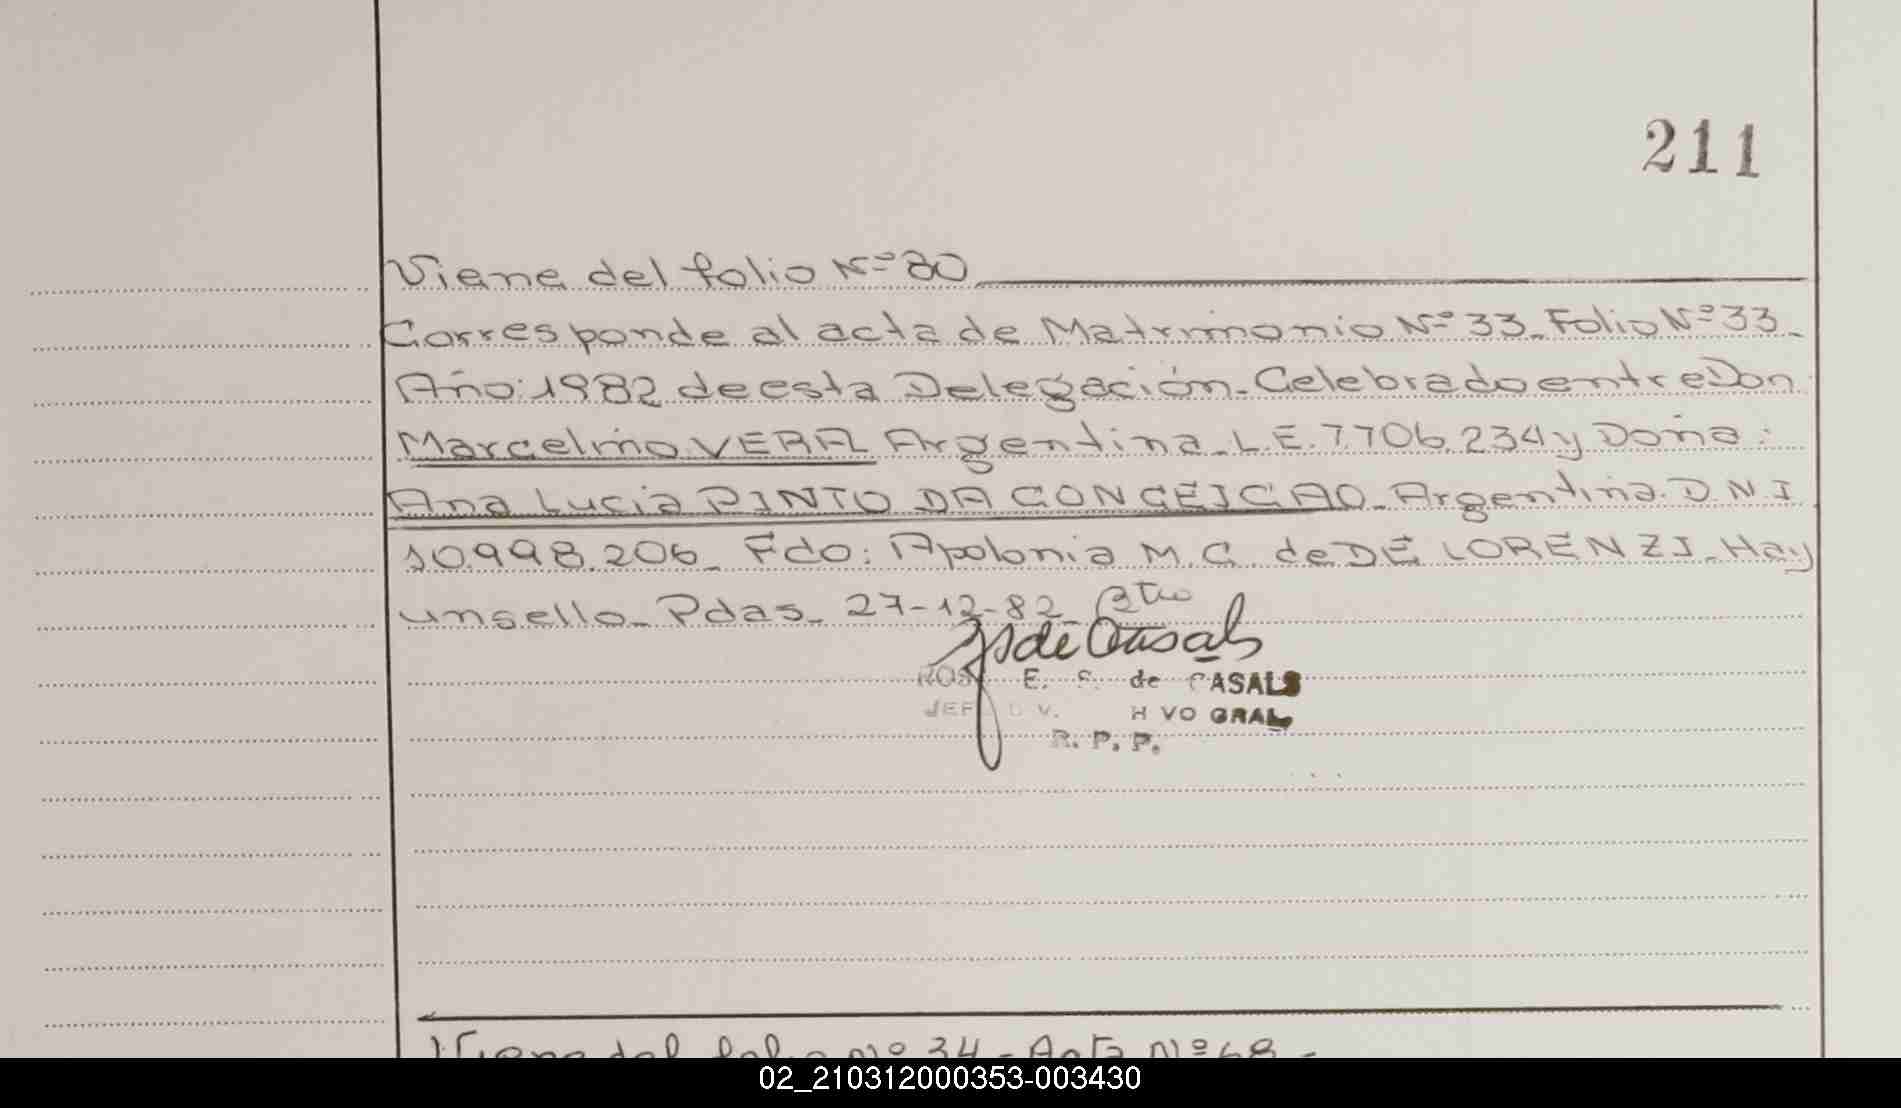 211
Viene del folio Nº 80
Corresponde al acta de Matrimonio Nº 33_Folio Nº 33_
Año: 1982 de esta Delegación_Celebrado entre Don
Marcelino VERA Argentina_L.E. 7.706.234 y Doña:
Ana Lucia PINTO DA CONCEICAO_Argentina. D.N.I
10.998.206_Fdo: Apolonia M.C. de DE LORENZI_Hay
un sello_Pdas_27-12-82_
de Casals
E. S. de CASALS
VO GRAL
R. P. P.
Viene del folio Nº 34_Acta Nº 68_
02_210312000353-003430